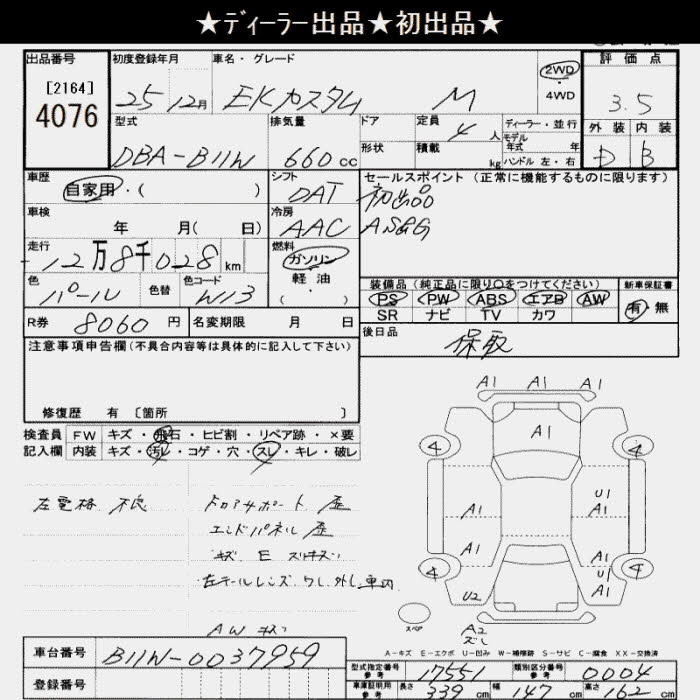 ★ディーラー出品★初出品★
出品番号 初度登録年月 車名・グレード 評価点
[2164] 4076 25 12月 EKカスタム M 2WD 4WD 3.5
外装 内装
D B
型式 排気量 ドア 定員 ディーラー・並行
DBA-B11W 660cc 4人 モデル年式 年
形状 積載 kg ハンドル 左・右
車歴 シフト セールスポイント(正常に機能するものに限ります)
自家用・( ) DAT 初出品
車検 冷房
年 月( 日) AAC AS&G
走行 燃料
12万8千028km ガソリン
軽油
・
( )
色 色替 色コード
パール W13
装備品(純正品に限り○をつけてください) 新車保証書
PS PW ABS エアB AW 有 無
SR ナビ TV カワ
R券 8060円 名変期限 月 日 後日品
保取
注意事項申告欄(不具合内容等は具体的に記入して下さい)
修復歴 有 〔箇所 〕
検査員 FW キズ・飛石・ヒビ割・リペア跡・×要
記入欄 内装 キズ・汚れ・コゲ・穴・スレ・キレ・破レ
左電格 不良 ドロアサポート 歪
エンドパネル 歪
キズ E
左テールレンズ ワレ 外し 車内
AW キズ
A1 A1 A1
A1
4 4
U1
A1 A1
A1 A1
U1
4 A1 4
U2
スペア A2
ズレ
A-キズ E-エクボ U-凹み W-補修跡 S-サビ C-腐食 XX-交換済
車台番号 B11W-0037959
型式指定番号 参考 17551 類別区分番号 参考 0004
登録番号
車庫証明用 参考 長さ 339cm 幅 147cm 高さ 162cm